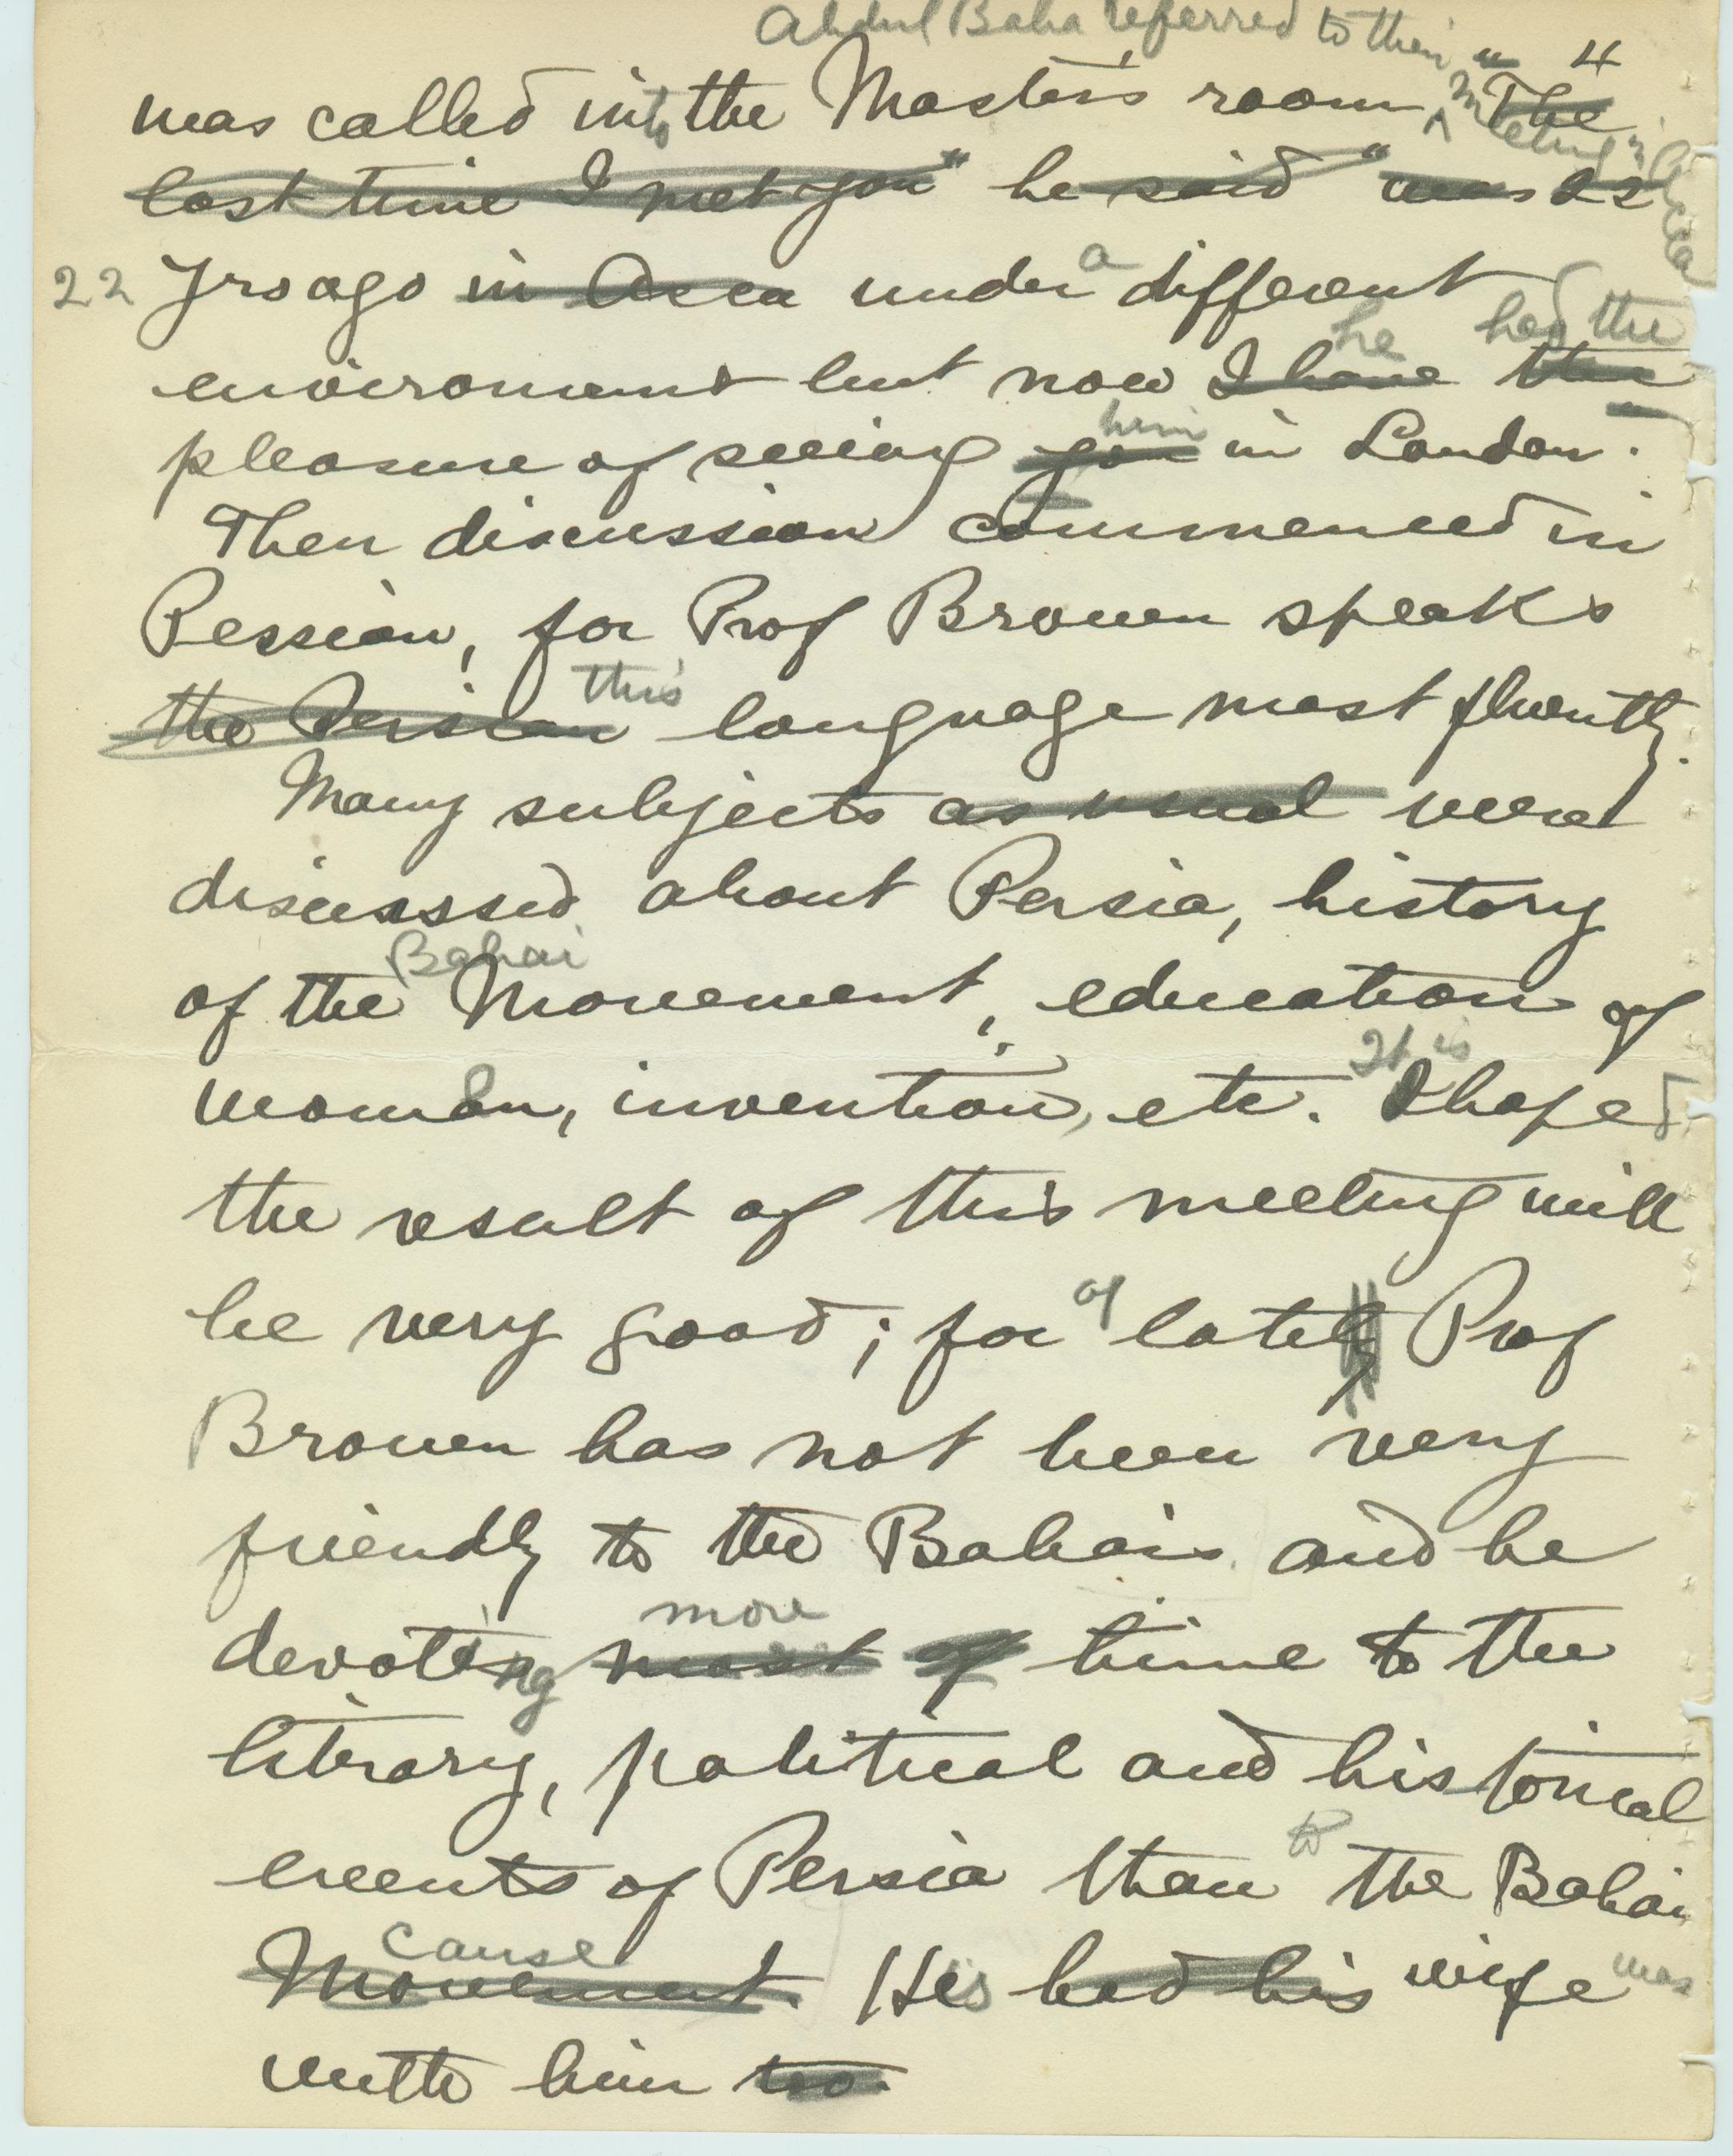 Abdul Baha referred to their 4
was called into the Master's room ^ meeting in Acca "The
last time I met you" he said "was 22
22 yrs ago in Acca under a different
he had the
enviroment but now I have the
him
pleasure of seeing you in London.
Then discussion commenced in
Pessian, for Prof Brown speaks
this
the Persian language most fluently.
Many subjects as usual were
discussed about Persia, history
Bahai
of the Movement, education of
It is
women, invention, etc. I hoped
the result of this meeting will
be very good; for of lately Prof
Brown has not been very
friendly to the Bahais and he
more
devoting most of time to the
litrary, political and historical
events of Persia than to the Bahai
cause
Movement. His had his wife was
with him too.